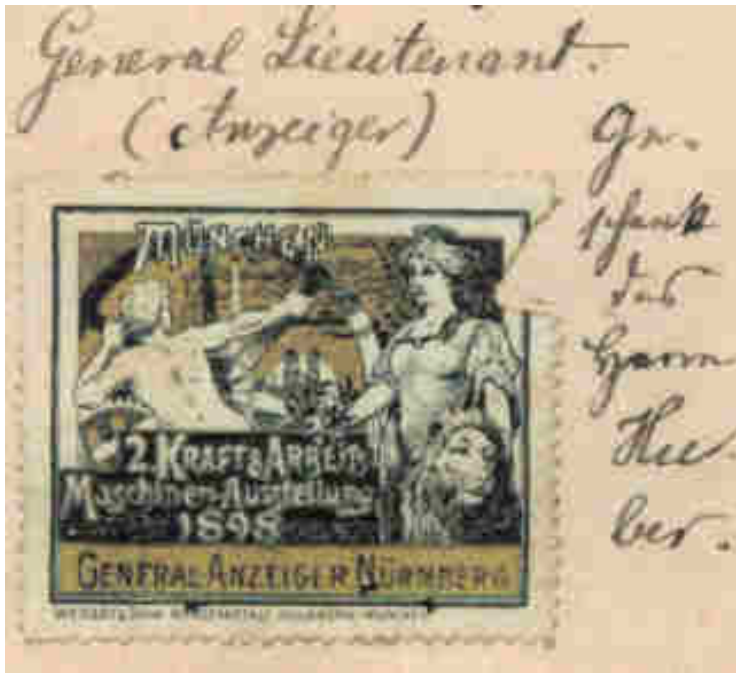 General Lieutenant.
(Anzeiger)
Ge-
schenk
des
Herrn
Hu-
ber.
MÜNCHEN
2. KRAFT & ARBEITS
Maschinen-Ausstellung
1898
GENERAL ANZEIGER NÜRNBERG